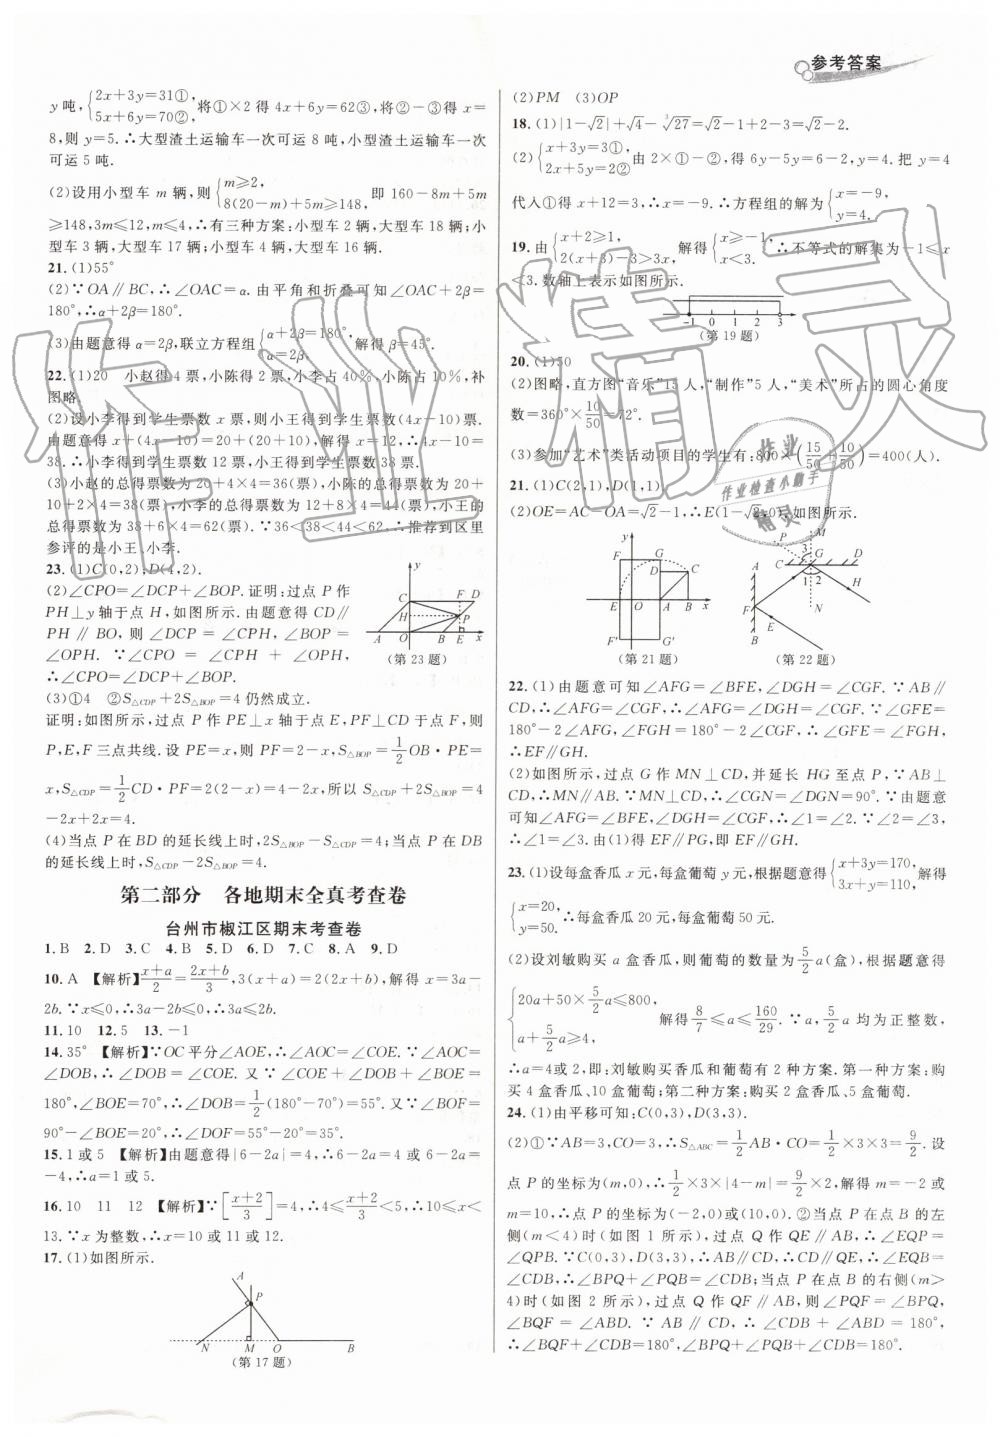 参考答案
y 吨,{2x+3y=31①, 5x+6y=70②,将①×2 得 4x+6y=62③,将②-③得 x=
8,则 y=5.∴大型渣土运输车一次可运 8 吨,小型渣土运输车一次
可运 5 吨.
(2)设用小型车 m 辆,则{m≥2, 8(20-m)+5m≥148, 即 160-8m+5m
≥148,3m≤12,m≤4,∴有三种方案:小型车 2 辆,大型车 18 辆;小
型车 3 辆,大型车 17 辆;小型车 4 辆,大型车 16 辆.
21.(1)55°
(2)∵OA∥BC,∴∠OAC=α.由平角和折叠可知∠OAC+2β=
180°,∴α+2β=180°.
(3)由题意得 α=2β,联立方程组{α+2β=180°, α=2β. 解得 β=45°.
22.(1)20 小赵得 4 票,小陈得 2 票,小李占 40%,小陈占 10%,补
图略.
(2)设小李得到学生票数 x 票,则小王得到学生票数(4x-10)票.
由题意得 x+(4x-10)=20+(20+10),解得 x=12,∴4x-10=
38.∴小李得到学生票数 12 票,小王得到学生票数 38 票.
(3)小赵的总得票数为 20+4×4=36(票),小陈的总得票数为 20+
10+2×4=38(票),小李的总得票数为 12+8×4=44(票),小王的
总得票数为 38+6×4=62(票).∵36<38<44<62,∴推荐到区里
参评的是小王,小李.
23.(1)C(0,2);D(4,2).
(2)∠CPO=∠DCP+∠BOP.证明:过点 P 作
PH⊥y 轴于点 H,如图所示.由题意得 CD∥
PH∥BO,则∠DCP=∠CPH,∠BOP=
∠OPH.∵∠CPO=∠CPH+∠OPH,
∴∠CPO=∠DCP+∠BOP.
y C F D H P A O B E x
(第 23 题)
(3)①4 ②S△CDP+2S△BOP=4 仍然成立.
证明:如图所示,过点 P 作 PE⊥x 轴于点 E,PF⊥CD 于点 F,则
P,E,F 三点共线.设 PE=x,则 PF=2-x,S△BOP=1/2 OB·PE=
x,S△CDP=1/2 CD·PF=2(2-x)=4-2x,所以 S△CDP+2S△BOP=4
-2x+2x=4.
(4)当点 P 在 BD 的延长线上时,2S△BOP-S△CDP=4;当点 P 在 DB
的延长线上时,S△CDP-2S△BOP=4.
第二部分 各地期末全真考查卷
台州市椒江区期末考查卷
1.B 2.D 3.C 4.B 5.D 6.D 7.C 8.A 9.D
10.A 【解析】(x+a)/2=(2x+b)/3,3(x+a)=2(2x+b),解得 x=3a-
2b.∵x≤0,∴3a-2b≤0,∴3a≤2b.
11.10 12.5 13.-1
14.35° 【解析】∵OC 平分∠AOE,∴∠AOC=∠COE.∵∠AOC=
∠DOB,∴∠DOB=∠COE.又∵∠COE+∠DOB+∠BOE=
180°,∠BOE=70°,∴∠DOB=1/2(180°-70°)=55°.又∵∠BOF=
90°-∠BOE=20°,∴∠DOF=55°-20°=35°.
15.1 或 5 【解析】由题意得|6-2a|=4,∴6-2a=4 或 6-2a=
-4,∴a=1 或 5.
16.10 11 12 【解析】∵[(x+2)/3]=4,∴4≤(x+2)/3<5,∴10≤x<
13.∵x 为整数,∴x=10 或 11 或 12.
17.(1)如图所示.
A P N M O B
(第 17 题)
(2)PM (3)OP
18.(1)|1-√2|+√4-³√27=√2-1+2-3=√2-2.
(2){x+3y=3①, 2x+5y=6②}由 2×①-②,得 6y-5y=6-2,y=4.把 y=4
代入①得 x+12=3,∴x=-9.∴方程组的解为{x=-9, y=4.
19.由{x+2≥1, 2(x+3)-3>3x, 解得{x≥-1, x<3. ∴不等式的解集为-1≤x
<3.数轴上表示如图所示.
-1 0 1 2 3
(第 19 题)
20.(1)50
(2)图略,直方图“音乐”15 人,“制作”5 人,“美术”所占的圆心角度
数=360°×10/50=72°.
(3)参加“艺术”类活动项目的学生有:800×(15/50+10/50)=400(人).
21.(1)C(2,1),D(1,1).
(2)OE=AC-OA=√2-1,∴E(1-√2,0).如图所示.
y F G D C E O A B x F′ G′
(第 21 题)
P M 3 G A C D 1 2 F H N E B
(第 22 题)
22.(1)由题意可知∠AFG=∠BFE,∠DGH=∠CGF.∵AB∥
CD,∴∠AFG=∠CGF,∴∠AFG=∠DGH.又∵∠GFE=
180°-2∠AFG,∠FGH=180°-2∠CGF,∴∠GFE=∠FGH,
∴EF∥GH.
(2)如图所示,过点 G 作 MN⊥CD,并延长 HG 至点 P,∵AB⊥
CD,∴MN∥AB.∵MN⊥CD,∴∠CGN=∠DGN=90°.∵由题意
可知∠AFG=∠BFE,∠DGH=∠CGF,∴∠1=∠2.∵∠2=∠3,
∴∠1=∠3.由(1)得 EF∥PG,即 EF∥GH.
23.(1)设每盒香瓜 x 元,每盒葡萄 y 元,可得{x+3y=170, 3x+y=110, 解得
{x=20, y=50.∴每盒香瓜 20 元,每盒葡萄 50 元.
(2)设刘敏购买 a 盒香瓜,则葡萄的数量为 5/2 a(盒),根据题意得
{20a+50×5/2 a≤800, a+5/2 a≥4, 解得 8/7≤a≤160/29.∵a,5/2 a 均为正整数,
∴a=4 或 2,即:刘敏购买香瓜和葡萄有 2 种方案.第一种方案:购
买 4 盒香瓜、10 盒葡萄;第二种方案:购买 2 盒香瓜、5 盒葡萄.
24.(1)由平移可知:C(0,3),D(3,3).
(2)①∵AB=3,CO=3,∴S△ABC=1/2 AB·CO=1/2×3×3=9/2.设
点 P 的坐标为(m,0),∴1/2×3×|4-m|=9/2,解得 m=-2 或
m=10,∴点 P 的坐标为(-2,0)或(10,0).②当点 P 在点 B 的左
侧(m<4)时(如图 1 所示),过点 Q 作 QE∥AB,∴∠EQP=
∠QPB.∵C(0,3),D(3,3),∴AB∥CD,∴CD∥QE,∴∠EQB=
∠CDB,∴∠BPQ+∠PQB=∠CDB;当点 P 在点 B 的右侧(m>
4)时(如图 2 所示),过点 Q 作 QF∥AB,则∠PQF=∠BPQ,
∠BQF=∠ABD.∵AB∥CD,∴∠CDB+∠ABD=180°,
∴∠CDB+∠BQF=180°,∴∠CDB+∠PQB-∠BPQ=180°.
作业精灵
作业
作业检查小助手
精灵